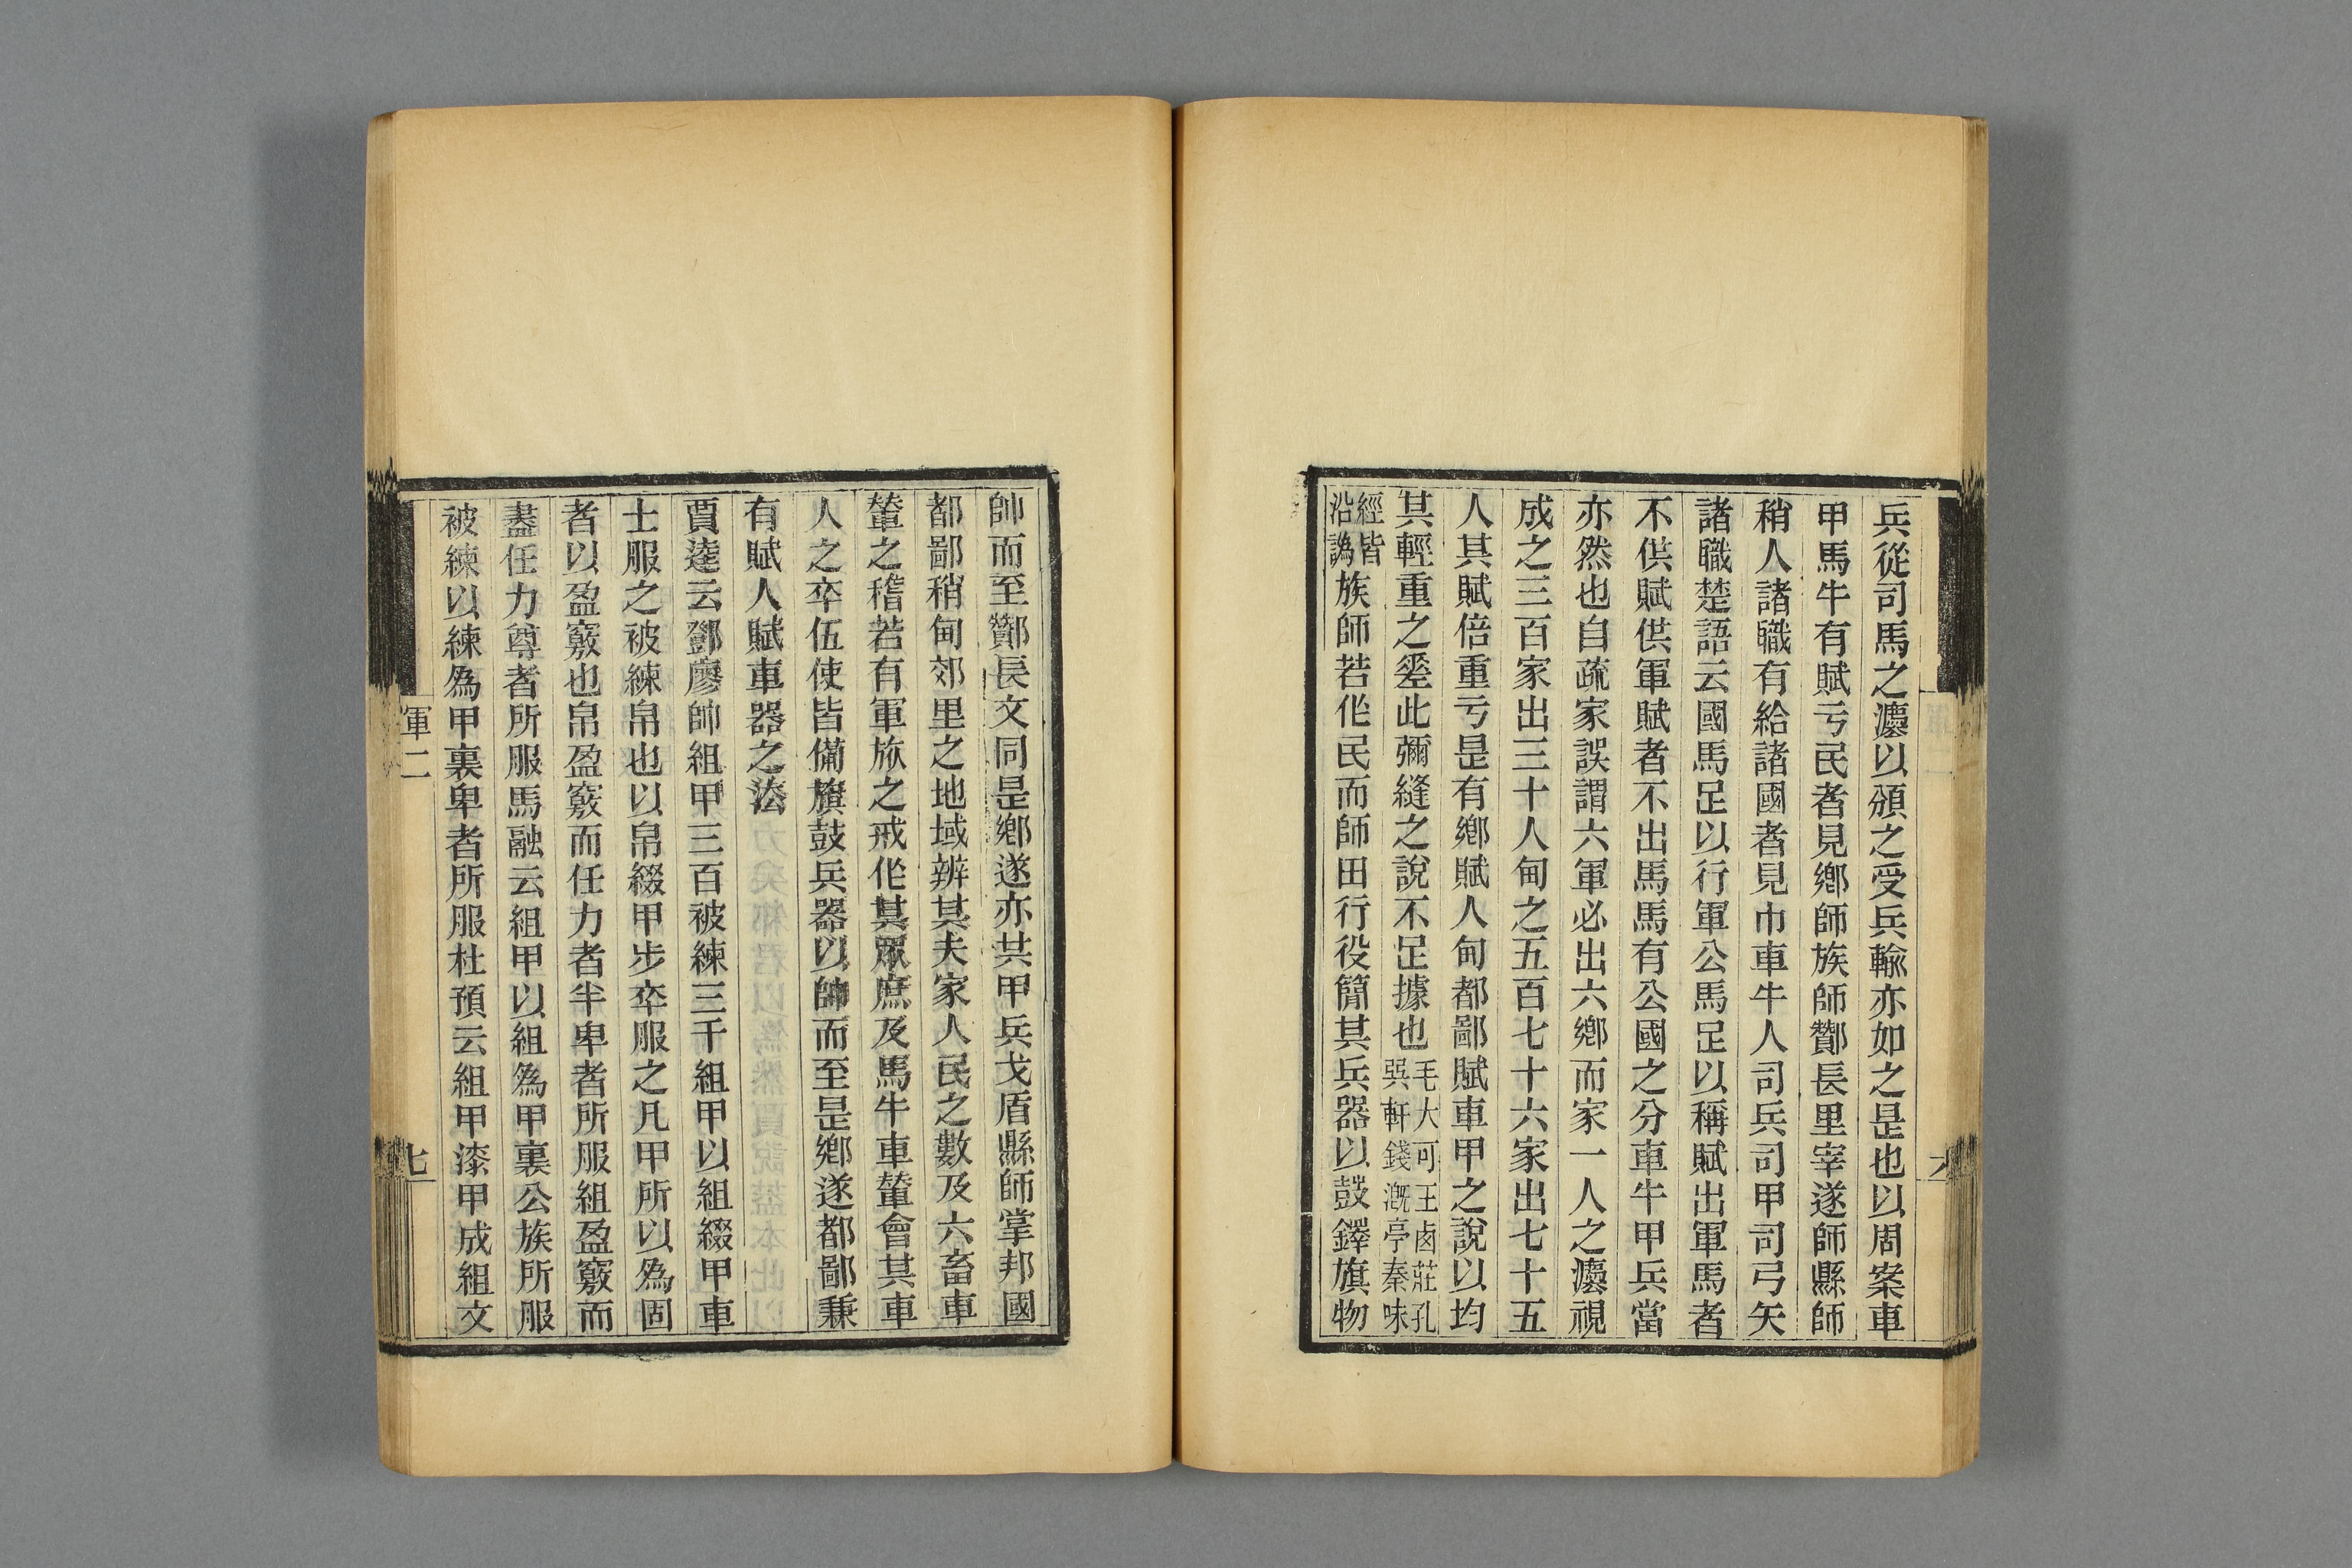 兵從司馬之灋以頒之受兵輸亦如之是也以周案車
甲馬牛有賦亏民者見鄉師族師酇長里宰遂師縣師
稍人諸職有給諸國者見巾車牛人司兵司甲司弓矢
諸職楚語云國馬足以行軍公馬足以稱賦出軍馬者
不供賦供軍賦者不出馬馬有公國之分車牛甲兵當
亦然也自疏家誤謂六軍必出六鄉而家一人之灋視
成之三百家出三十人甸之五百七十六家出七十五
人其賦倍重亏是有鄉賦人甸都鄙賦車甲之說以均
其輕重之𢀩此彌縫之說不足據也毛大可王鹵莊孔
㢲軒錢溉亭秦味
經皆
沿譌族師若作民而師田行役簡其兵器以鼓鐸旗物
帥而至酇長文同是鄉遂亦共甲兵戈盾縣師掌邦國
都鄙稍甸郊里之地域辨其夫家人民之數及六畜車
輦之稽若有軍旅之戒作其眾庶及馬牛車輦會其車
人之卒伍使皆備旗鼓兵器以帥而至是鄉遂都鄙兼
有賦人賦車器之法
賈逵云鄧廖帥組甲三百被練三千組甲以組綴甲車
士服之被練帛也以帛綴甲步卒服之凡甲所以為固
者以盈竅也帛盈竅而任力者半卑者所服組盈竅而
盡任力尊者所服馬融云組甲以組為甲裏公族所服
被練以練為甲裏卑者所服杜預云組甲漆甲成組文
軍二
七